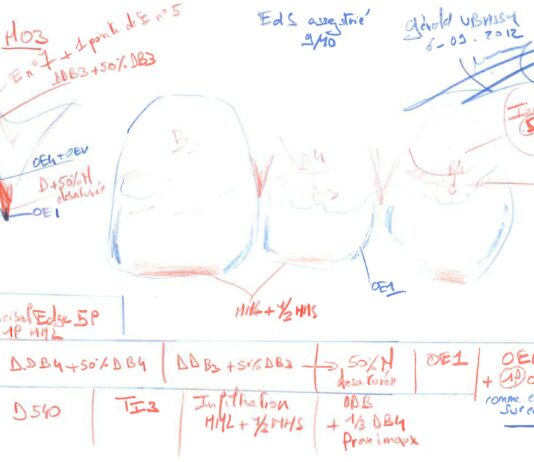 M03
E n° 7 + 1 pointe de E n° 5
DDB3+50% DB3
EdS assegtrié
9/10
Gérald UBASSY
6-09-2012
OE4+OEV
D+50%N
desaturée
OE1
B
B4
B3
OE1
HML + 1/2 HHS
Incisal Edge 5P
1P HML
D.DB4+50% DB4
DDB3 +50% DB3
50% N
desaturée
OE1
OE
+ 1P O
comme e
sur ce
D540
TI3
Infiltration
HML + 1/2 HHS
ODB
+ 1/3 DB4
Proximaux